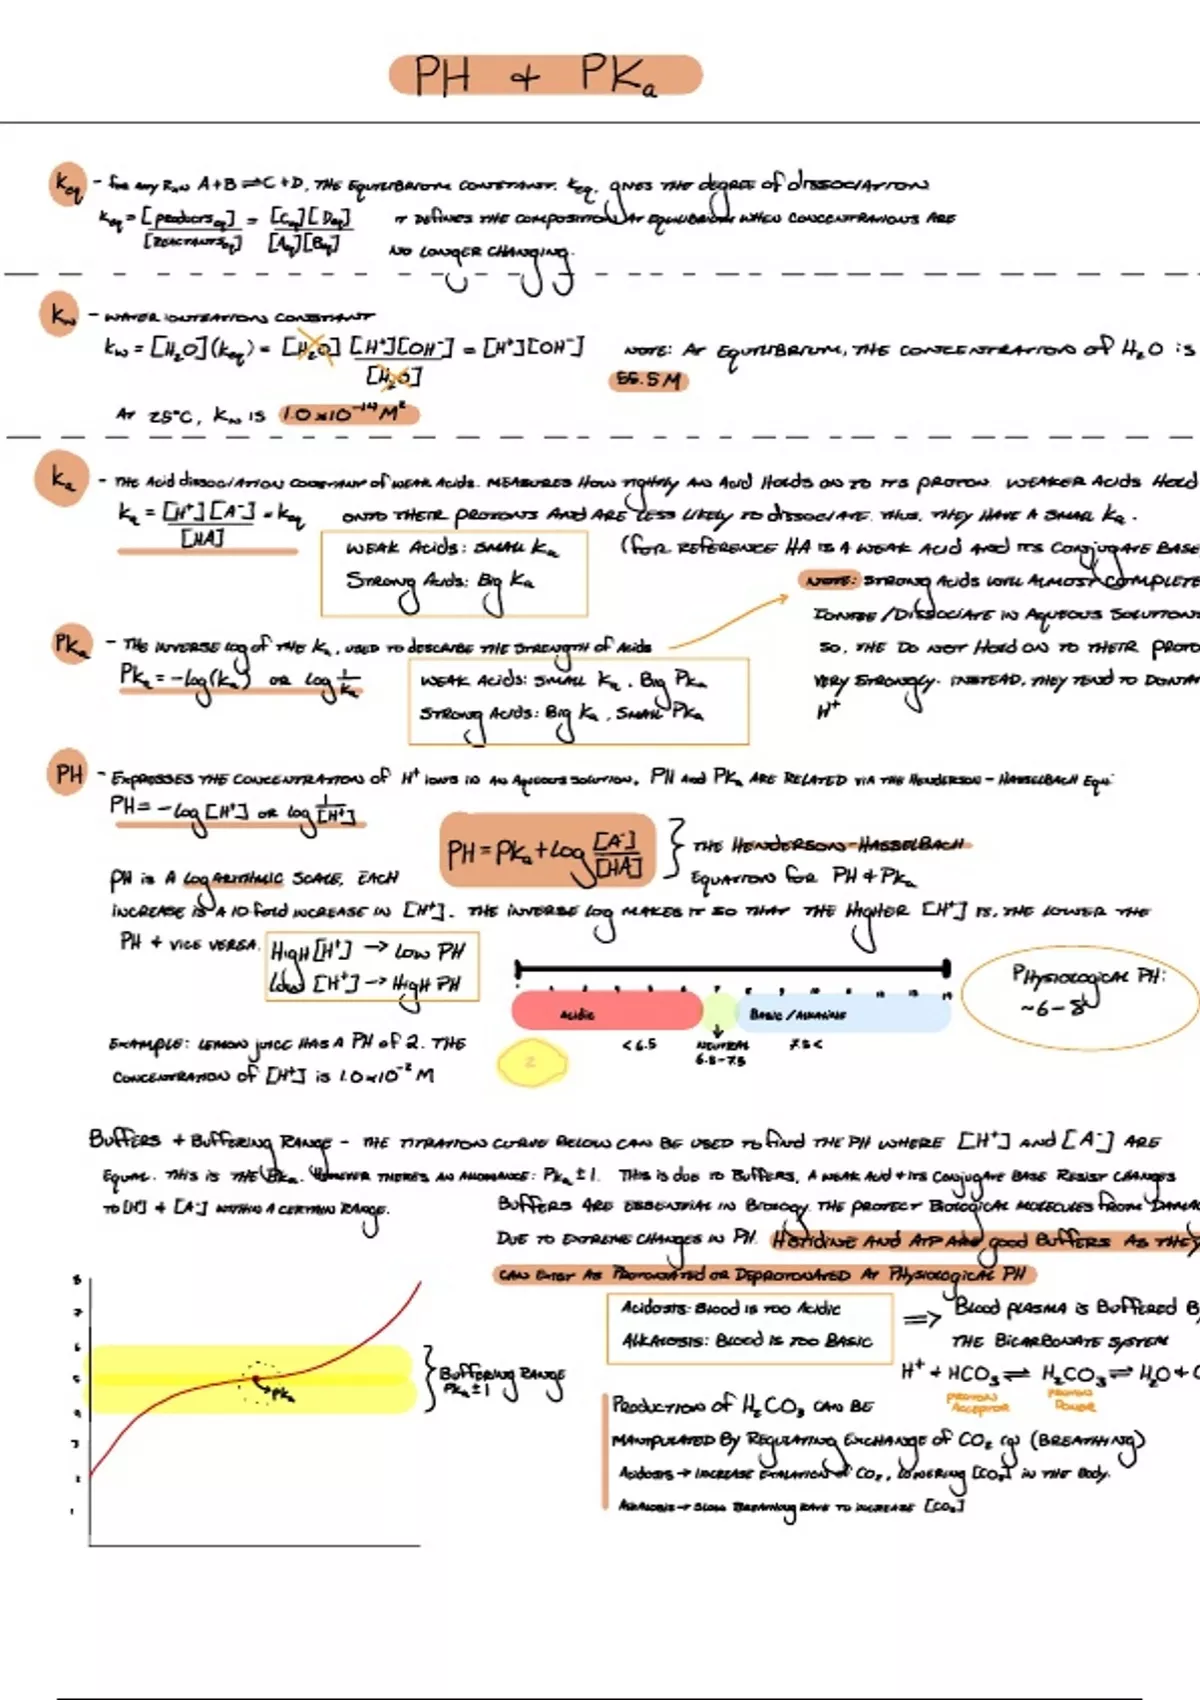 PH + PKa
Keq - for any Rxn A+B ⇌ C+D, THE EQUILIBRIUM CONSTANT, Keq, gives THE degree of dissociation
Keq = [productseq]/[REACTANTSeq] = [Ceq][Deq]/[Aeq][Beq] IT DEFINES THE COMPOSITION AT EQUILIBRIUM WHEN CONCENTRATIONS ARE
NO LONGER CHANGING.
Kw - WATER IONIZATION CONSTANT
Kw = [H2O](Keq) = [H2O] [H+][OH-]/[H2O] = [H+][OH-] NOTE: AT EQUILIBRIUM, THE CONCENTRATION of H2O is
55.5M
AT 25°C, Kw IS 1.0x10^-14 M²
Ka - THE Acid dissociation constant of weak Acids. MEASURES How TIGHTLY AN Acid Holds ON TO ITS PROTON. WEAKER Acids Hold
Ka = [H+][A-]/[HA] = Keq ONTO THEIR PROTONS AND ARE LESS LIKELY TO dissociate. THUS, THEY HAVE A SMALL Ka.
WEAK Acids: SMALL Ka (FOR REFERENCE HA IS A WEAK Acid AND ITS Conjugate BASE
STRONG Acids: Big Ka NOTE: STRONG Acids WILL ALMOST
IONIZE/DISSOCIATE IN AQUEOUS
PKa - THE INVERSE log of THE Ka, USED TO DESCRIBE THE STRENGTH of Acids SO, THE DO NOT Hold ON TO THEIR
PKa = -log(Ka) OR log 1/Ka WEAK Acids: SMALL Ka, Big PKa VERY STRONGLY. INSTEAD, THEY TEND TO
STRONG Acids: Big Ka, SMALL PKa H+
PH - EXPRESSES THE CONCENTRATION of H+ IONS IN AN Aqueous solution, PH and PKa ARE RELATED VIA THE HENDERSON-HASSELBACH Equ:
PH = -log[H+] OR log 1/[H+]
PH = PKa + log [A-]/[HA] } THE HENDERSON-HASSELBACH
EQUATION for PH + PKa
PH is A LOGARITHMIC SCALE, EACH
INCREASE IS A 10-fold INCREASE IN [H+]. THE INVERSE Log MAKES IT SO THAT THE HIGHER [H+] IS, THE LOWER THE
PH + VICE VERSA. High [H+] → Low PH
Low [H+] → High PH
Acidic BASIC/ALKALINE
<6.5 NEUTRAL 7.5<
6.5-7.5
2
PHysiological PH:
~6-8
EXAMPLE: LEMON JUICE HAS A PH of 2. THE
CONCENTRATION of [H+] is 1.0x10^-2 M
Buffers + Buffering RANGE - THE TITRATION CURVE BELOW CAN BE USED TO find THE PH WHERE [H+] AND [A-] ARE
EQUAL. THIS IS THE PKa. HOWEVER THERE'S AN ALLOWANCE: PKa ± 1. THIS IS due TO Buffers, A weak Acid + ITS Conjugate BASE RESIST CHANGES
TO [H+] + [A-] WITHIN A CERTAIN RANGE.
Buffers ARE ESSENTIAL IN Biology. THE PROTECT Biological MOLECULES from
DUE TO EXTREME CHANGES IN PH. HISTIDINE AND ATP ARE good Buffers AS THEY
CAN EXIST AS PROTONATED OR DEPROTONATED AT PHysiological PH
Acidosis: Blood IS TOO Acidic
ALKALOSIS: Blood IS TOO BASIC
=> Blood PLASMA is Buffered
THE BICARBONATE SYSTEM
H+ + HCO3 ⇌ H2CO3 ⇌ H2O +
PROTON ACCEPTOR PROTON DONOR
PRODUCTION of H2CO3 CAN BE
MANIPULATED BY REGULATING EXCHANGE of CO2 (g) (BREATHING)
Acidosis → INCREASE EXHALATION of CO2, LOWERING [CO2] IN THE Body.
ALKALOSIS → SLOW BREATHING RATE TO INCREASE [CO2]
8
7
6
5
4
3
2
1
PKa
} Buffering RANGE
PKa ± 1